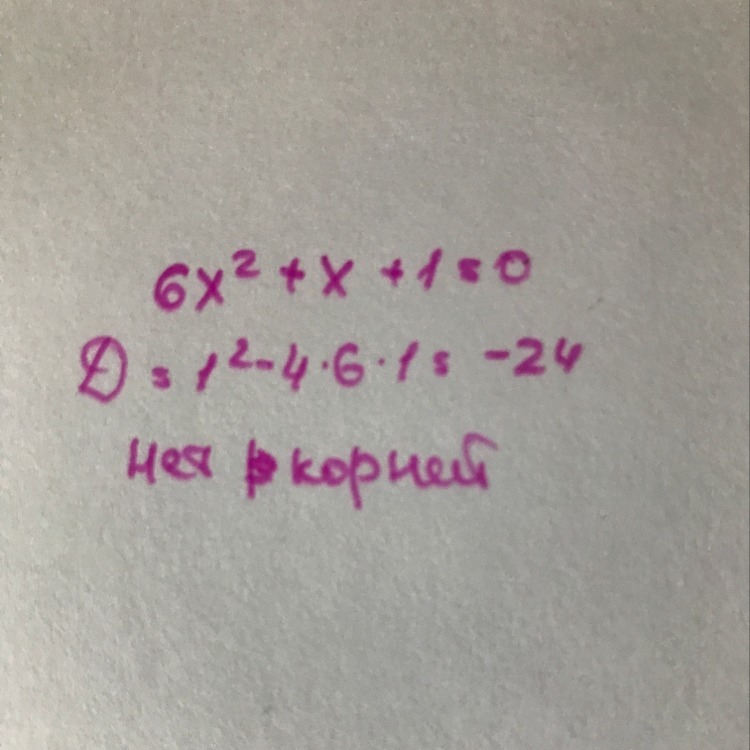 6x² + x + 1 = 0
D = 1² - 4 · 6 · 1 = -24
нет корней